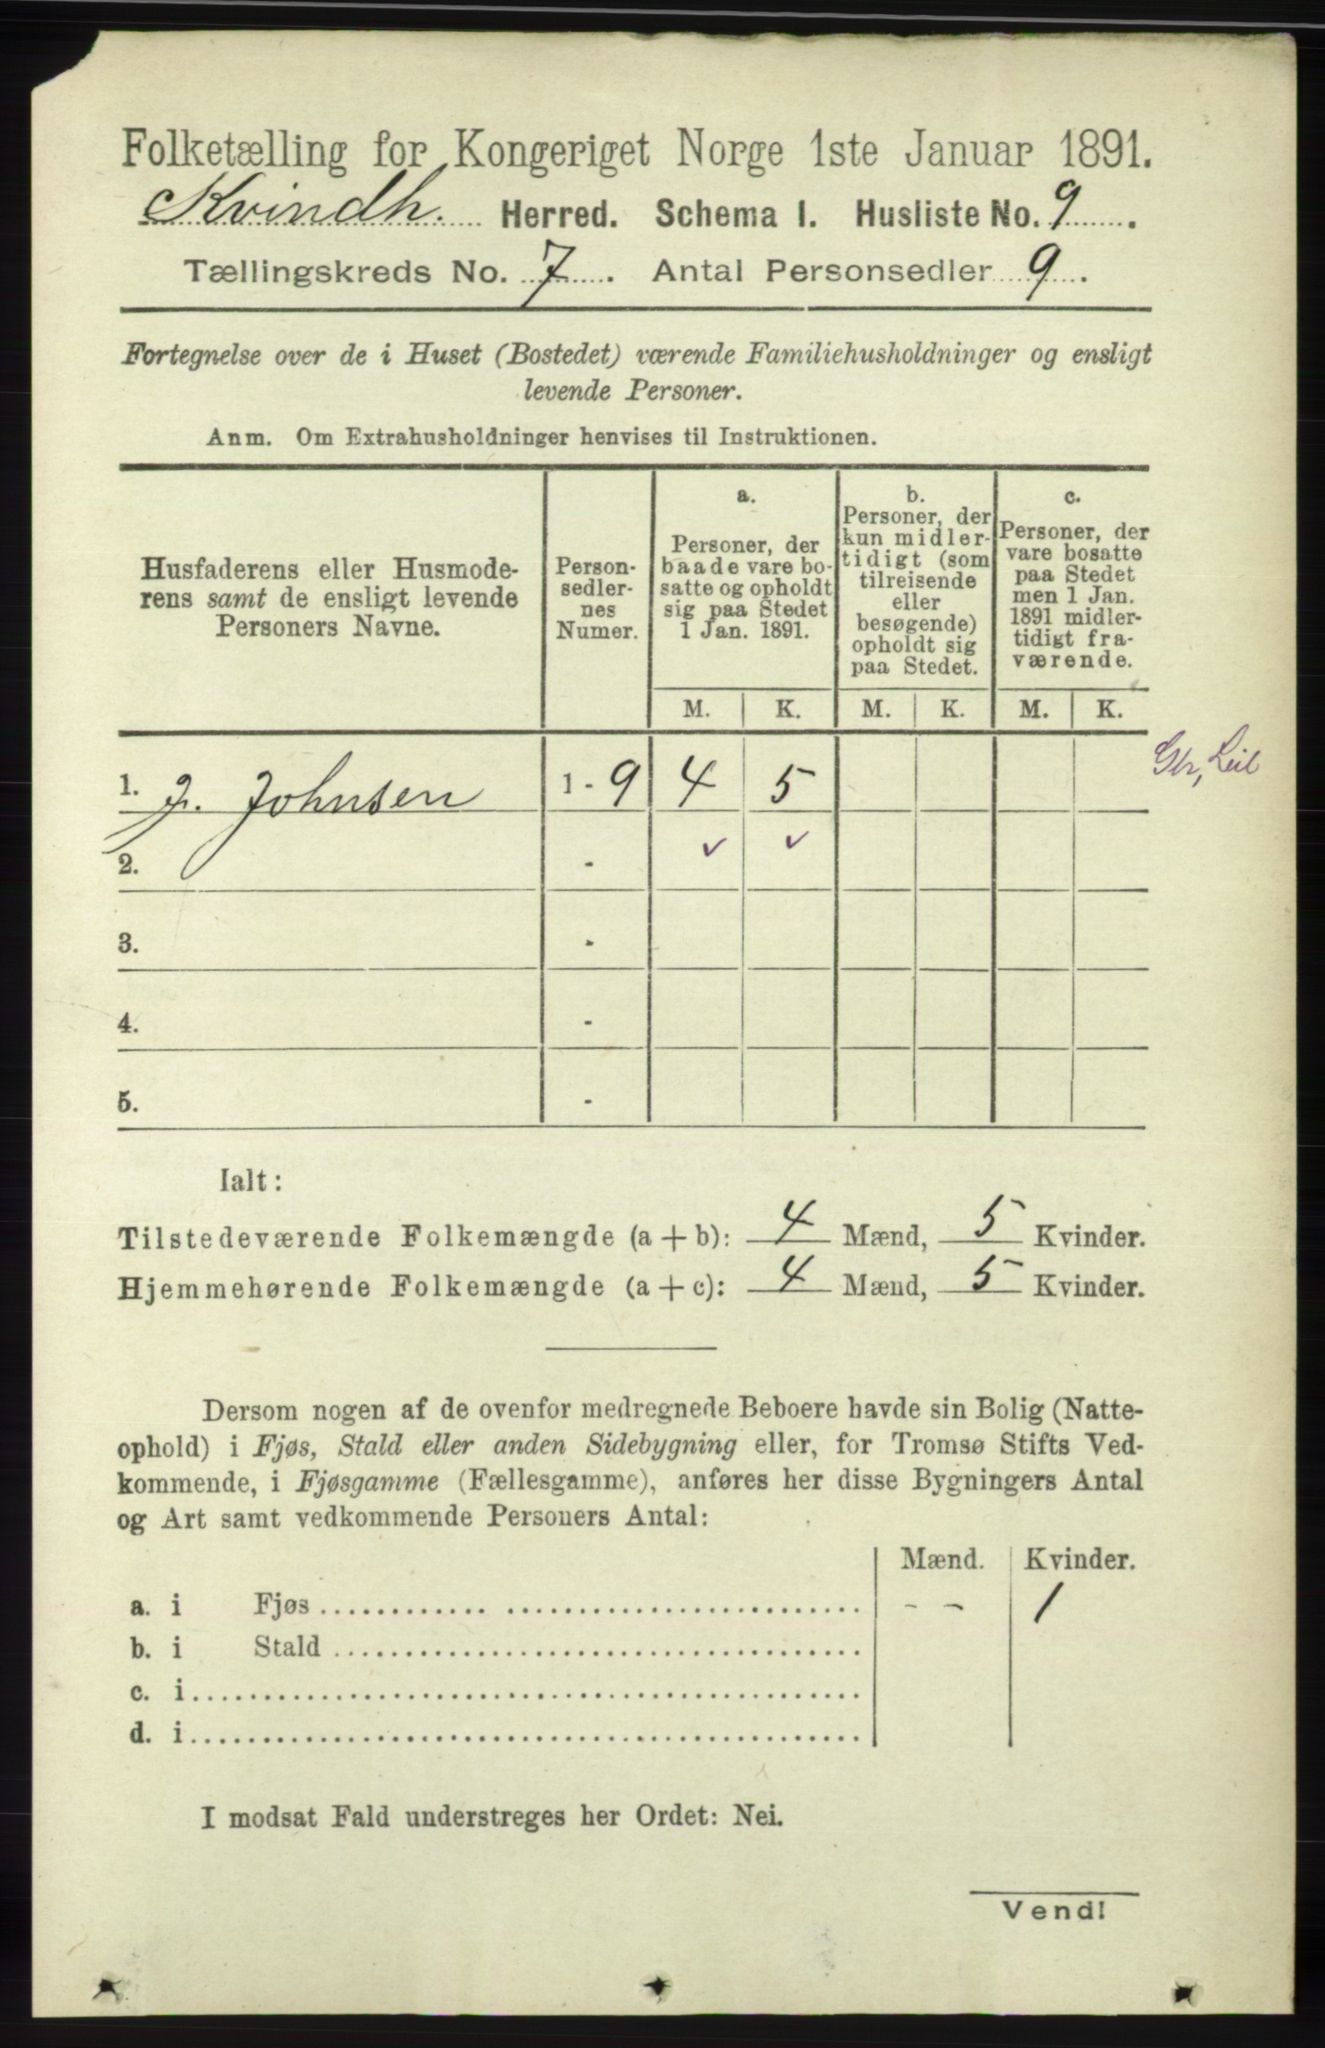 Folketælling for Kongeriget Norge 1ste Januar 1891.
Kvindh. Herred. Schema I. Husliste No. 9.
Tællingskreds No. 7. Antal Personsedler 9.
Fortegnelse over de i Huset (Bostedet) værende Familiehusholdninger og ensligt
levende Personer.
Anm. Om Extrahusholdninger henvises til Instruktionen.
Husfaderens eller Husmode-
rens samt de ensligt levende
Personers Navne.
Person-
sedler-
nes
Numer.
a.
Personer, der
baade vare bo-
satte og opholdt
sig paa Stedet
1 Jan. 1891.
b.
Personer, der
kun midler-
tidigt (som
tilreisende
eller
besøgende)
opholdt sig
paa Stedet.
c.
Personer, der
vare bosatte
paa Stedet
men 1 Jan.
1891 midler-
tidigt fra-
værende.
M. K. M. K. M. K.
1. J. Johnsen 1 - 9 4 5
2. -
3. -
4. -
5. -
Ialt:
Tilstedeværende Folkemængde (a + b): 4 Mænd, 5 Kvinder.
Hjemmehørende Folkemængde (a + c): 4 Mænd, 5 Kvinder.
Dersom nogen af de ovenfor medregnede Beboere havde sin Bolig (Natte-
ophold) i Fjøs, Stald eller anden Sidebygning eller, for Tromsø Stifts Ved-
kommende, i Fjøsgamme (Fællesgamme), anføres her disse Bygningers Antal
og Art samt vedkommende Personers Antal:
Mænd. Kvinder.
a. i Fjøs - - 1
b. i Stald
c. i
d. i
I modsat Fald understreges her Ordet: Nei.
Vend!